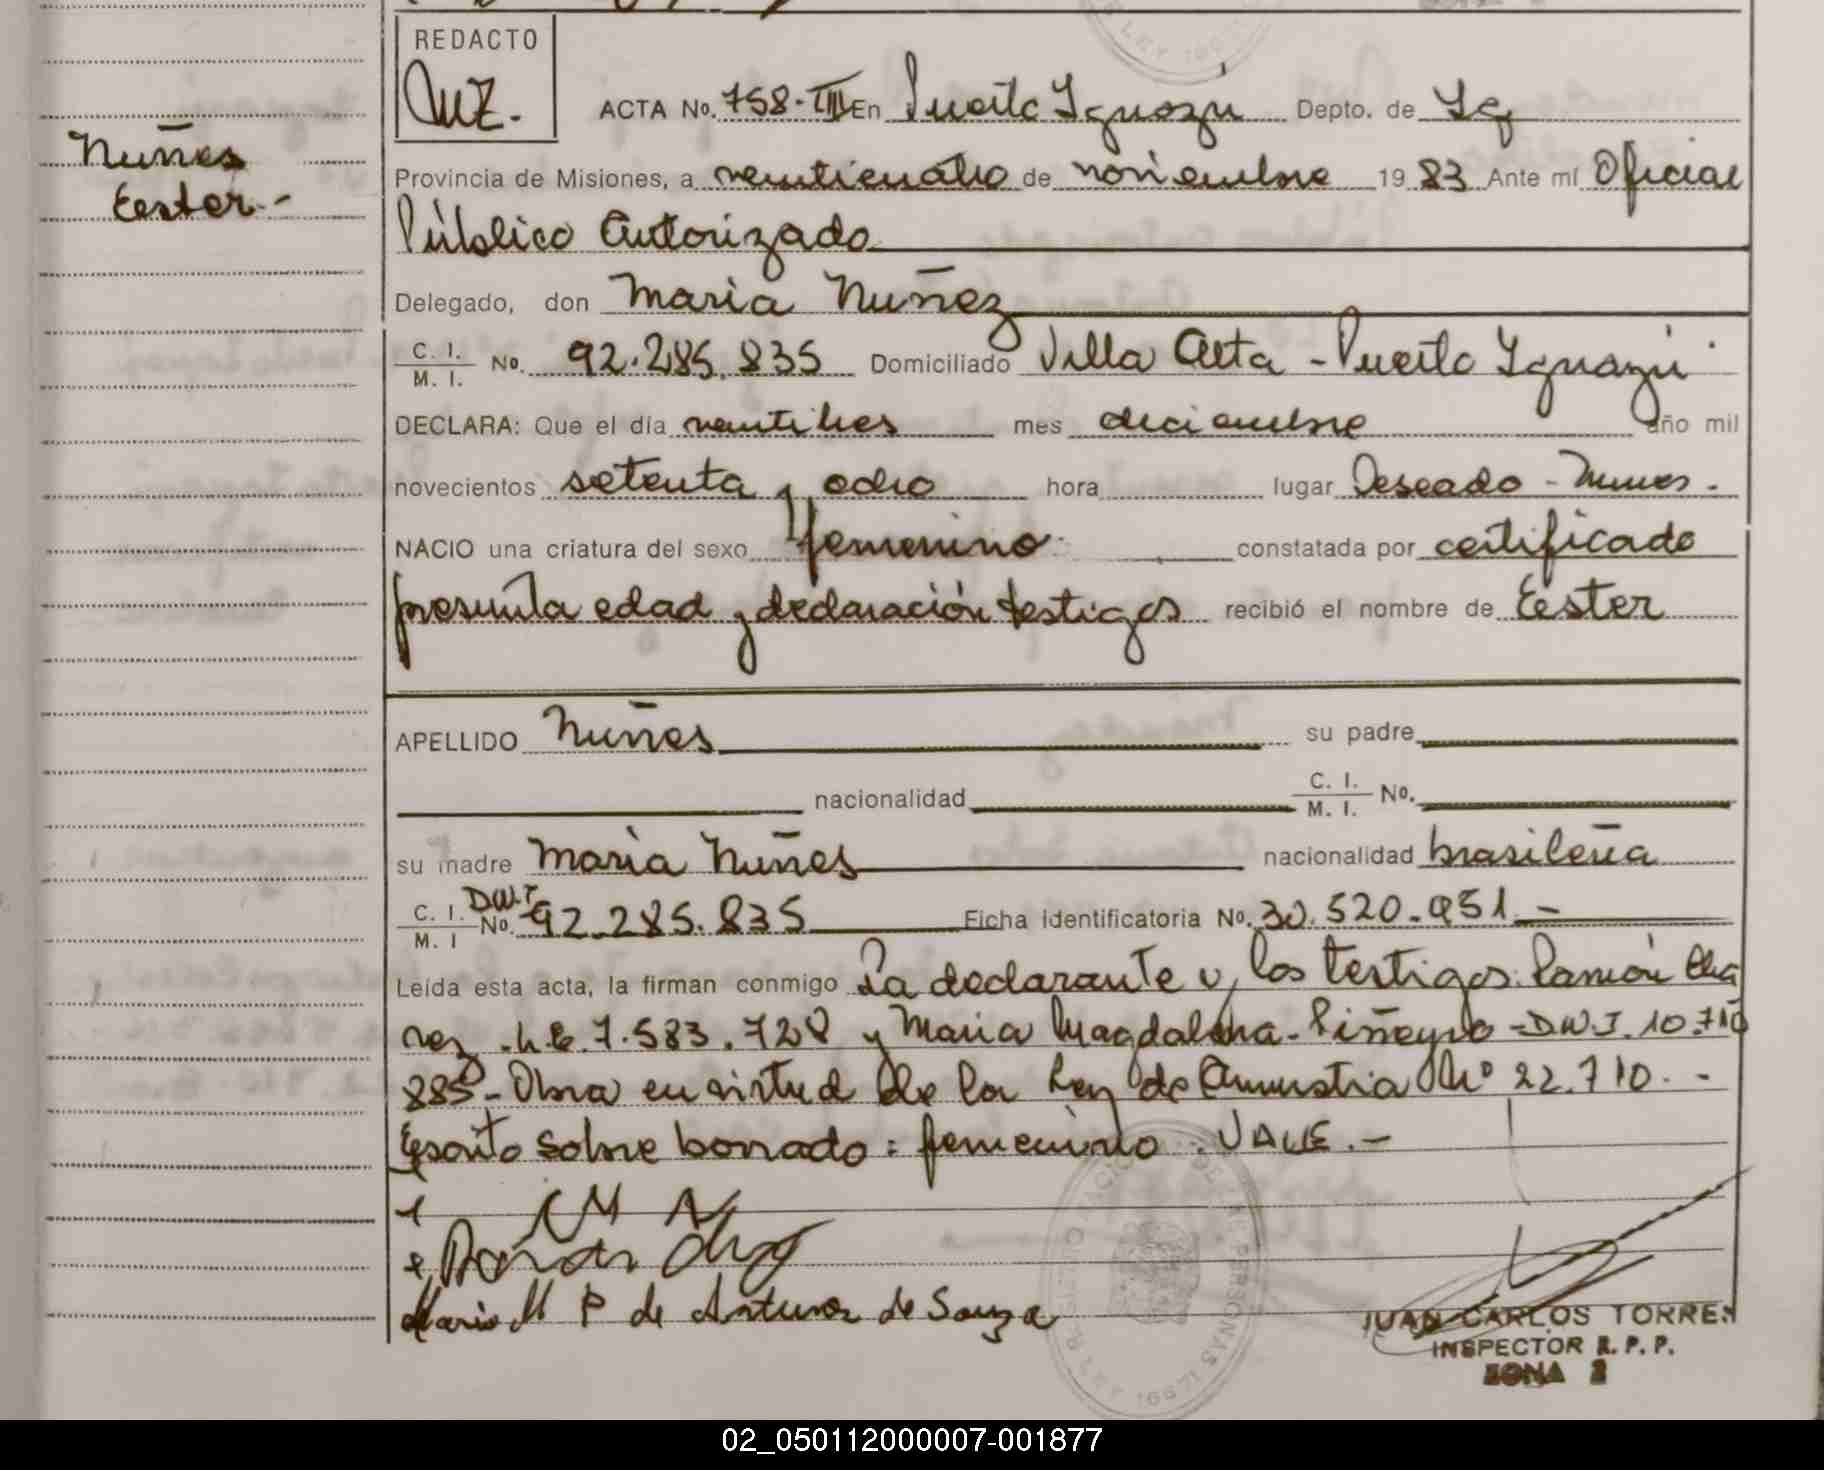 REDACTO
ACTA No. 758-III En Puerto Iguazú Depto. de Ig
Nuñes
Provincia de Misiones, a veinticuatro de noviembre 19 83 Ante mí Oficial
Eester.-
Público Autorizado
Delegado, don Maria Nuñez
C. I.
M. I. No. 92.285.835 Domiciliado Villa Alta - Puerto Iguazú
DECLARA: Que el día veintitres mes diciembre año mil
novecientos setenta y ocho hora lugar Deseado - Mnes.
NACIO una criatura del sexo femenino constatada por certificado
presunta edad y declaración testigos recibió el nombre de Eester
APELLIDO Nuñes su padre
nacionalidad C. I.
M. I. No.
su madre Maria Nuñes nacionalidad brasileña
C. I. D.N.I.
M. I No. 92.285.835 Ficha identificatoria No. 30.520.951.-
Leída esta acta, la firman conmigo La declarante y los testigos: Ramón Cha
vez - L.E. 7.583.728 y Maria Magdalena Piñeyro - D.N.I. 10.710
885 - Obra en virtud de la Ley de Amnistia Nº 22.710.-
Escrito sobre borrado: femenino. VALE.-
M N
Ramon Chavez
Maria M P de Antunez de Souza
JUAN CARLOS TORRES
INSPECTOR R. P. P.
ZONA 2
02_050112000007-001877